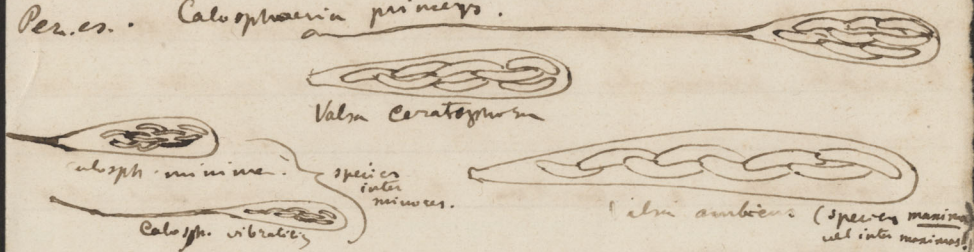 Per. es. Calosphaeria princeps.
Valsa ceratophora
Calosph. minima.
species
inter
minores.
Calosph. vibratilis
Valsa ambiens (species maxima
vel inter maximas)